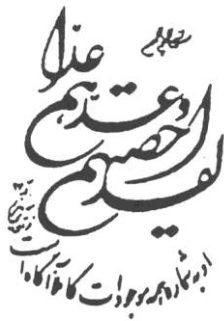 لقد
احصیهم
وعدهم
عدا
او به شماره همه موجودات کاملا آگاه است